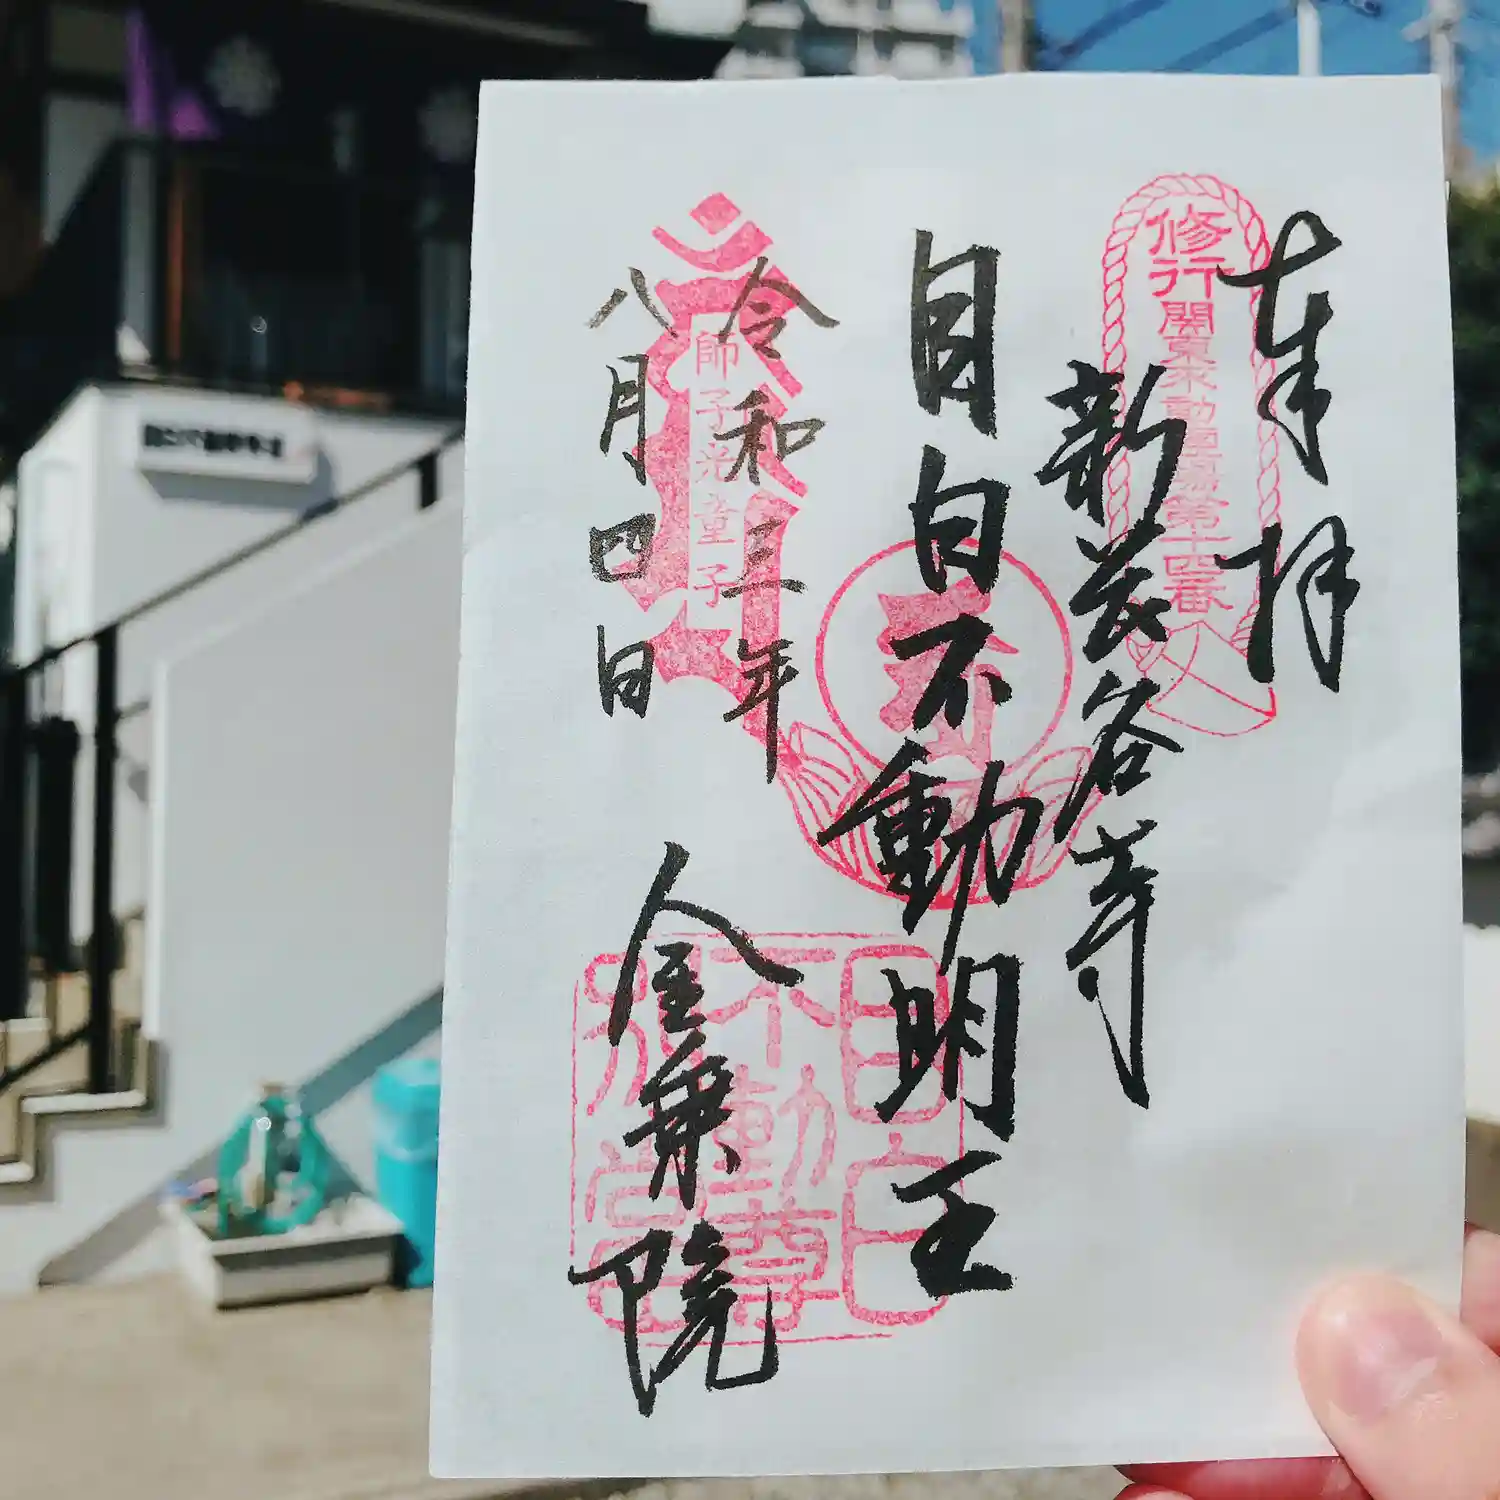 奉拝
修行
関東不動霊場第十四番
新長谷寺
目白不動明王
令和三年
師子光童子
八月四日
目白
不動尊
金乗院